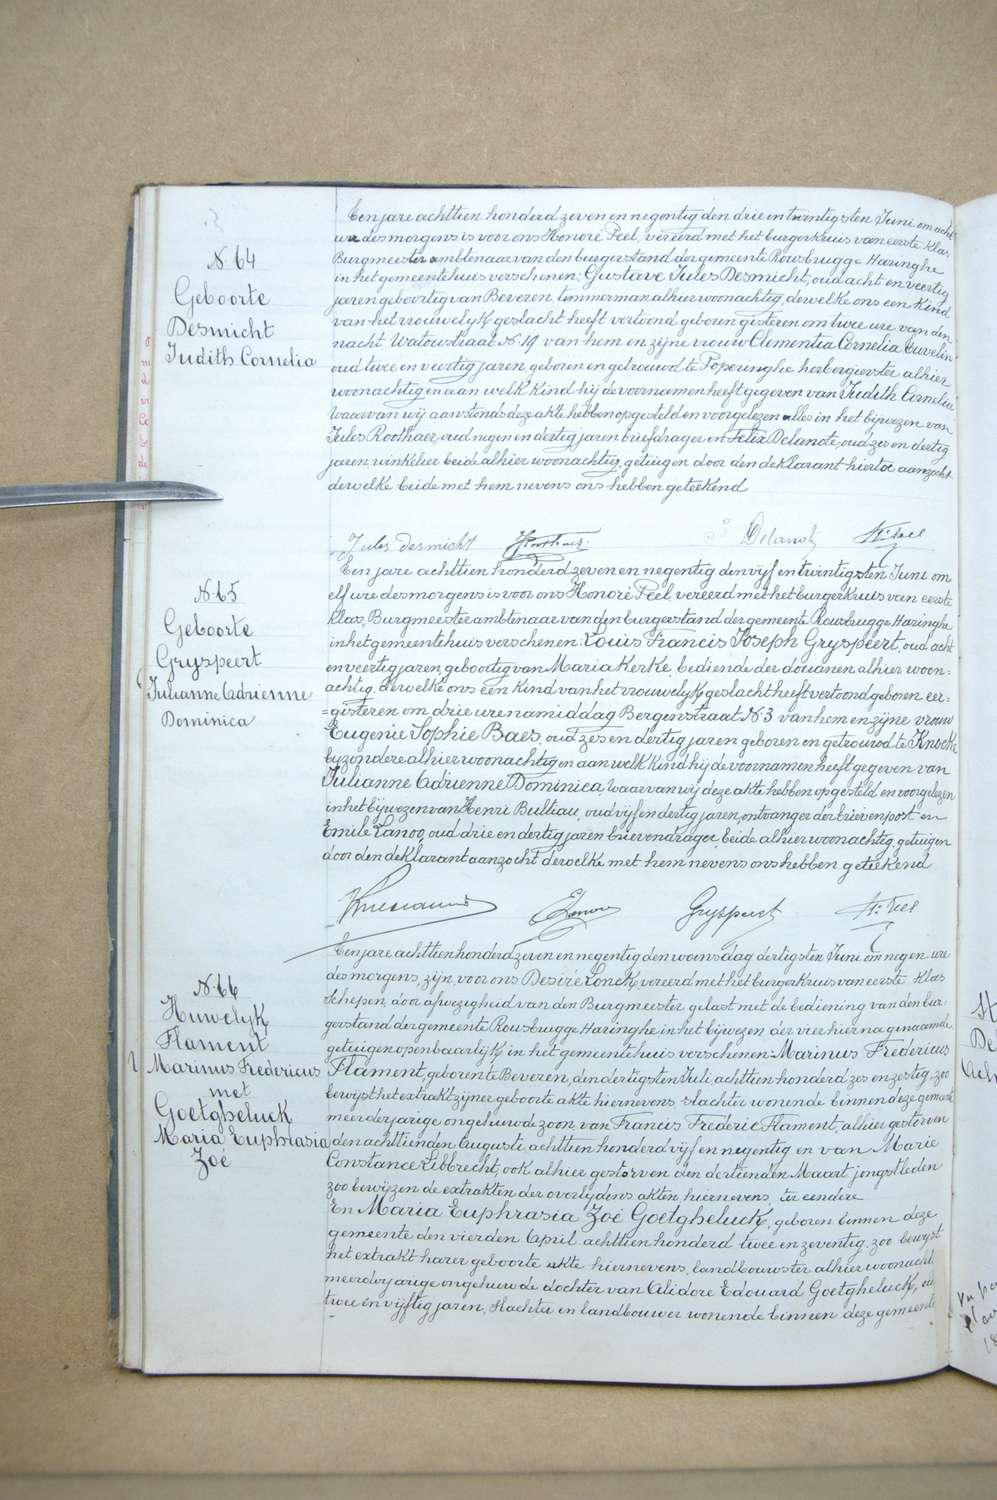 N. 64
Geboorte
Desmicht
Judith Cornelia
Een jare achttien honderd zeven en negentig den drie en twintigsten Juni om acht
ure des morgens is voor ons Honoré Peel, vereerd met het burgerkruis van eerste klas,
Burgmeester amblenaar van den burgerstand der gemeente Rousbrugge Haringhe
in het gemeentehuis verschenen: Gustave Jules Desmicht, oud acht en veertig
jaren geboortig van Beveren timmerman alhier woonachtig, dewelke ons een kind
van het vrouwelijk geslacht heeft vertoond geboren gisteren om twee ure van den
nacht Watowstraat N. 19 van hem en zijne vrouw Clementia Cornelia
oud twee en veertig jaren, geboren en getrouwd te Poperinghe herbergierster alhier
woonachtig en aan welk kind hij de voornamen heeft gegeven van Judith Cornelia
Waarvan wij aanstonds deze akte hebben opgesteld en voorgelezen alles in het bijwezen van
Jules Roothaer, oud negen en dertig jaren briefdrager en Felix Delanote, oud zes en dertig
jaren, winkelier beide alhier woonachtig, getuigen door den deklarant hiertoe aanzocht
derwelke beide met hem nevens ons hebben geteekend
Jules Desmicht Delanote H. Peel
N. 65
Geboorte
Gryspeert
Julianne Adrienne
Dominica
Een jare achttien honderd zeven en negentig den vijf en twintigsten Juni om
elf ure des morgens is voor ons Honoré Peel, vereerd met het burgerkruis van eerste
klas, Burgmeester amblenaar van den burgerstand der gemeente Rousbrugge Haringhe
in het gemeentehuis verschenen: Louis Francis Joseph Gryspeert, oud acht
en veertig jaren, geboortig van Mariakerke, bediende der douanen alhier woon-
achtig, dewelke ons een kind van het vrouwelijk geslacht heeft vertoond geboren eer=
=gisteren om drie ure namiddag Bergenstraat N. 3 van hem en zijne vrouw
Eugenie Sophie Baes, oud zes en dertig jaren geboren en getrouwd te Knocke
byzondere alhier woonachtig en aan welk kind hij de voornamen heeft gegeven van
Julianne Adrienne Dominica, Waarvan wij deze akte hebben opgesteld en voorgelezen
in het bijwezen van Henri Bultiau, oud vijf en dertig jaren, ontvanger der brievenpost en
Emile Lanoo, oud drie en dertig jaren brievendrager, beide alhier woonachtig, getuigen
door den deklarant aanzocht derwelke met hem nevens ons hebben geteekend
ELanoo Gryspeert H. Peel
N. 66
Huwelyk
Flament
Marinus Fredericus
met
Goetgheluck
Maria Euphrasia
Zoé
Een jare achttien honderd zeven en negentig den woensdag dertigsten Juni om negen ure
des morgens, zijn voor ons Desiré Lonck vereerd met het burgerkruis van eerste klas
schepen, door afwezigheid van den Burgmeester gelast met de bediening van den bur-
gerstand der gemeente Rousbrugge Haringhe in het bijwezen der vier hierna genaamde
getuigen openbaarlijk in het gemeentehuis verschenen: Marinus Fredericus
Flament, geboren te Beveren, den dertigsten Juli, achttien honderd zes en zestig, zoo
bewijst het extrakt zijner geboorte akte hiernevens slachter wonende binnen deze gemeente
meerderjarige ongehuwde zoon van Francis Frederic Flament, alhier gestorven
den achttienden Auguste achttien honderd vijf en negentig en van Marie
Constance Libbrecht, ook alhier gestorven den dertienden Maart jongstleden
zoo bewijzen de extrakten der overlijdens akten hiernevens, ter eendere
En Maria Euphrasia Zoé Goetgheluck, geboren binnen deze
gemeente den vierden April achttien honderd twee en zeventig, zoo bewijst
het extrakt harer geboorte akte hiernevens, landbouwster alhier woonacht
meerderjarige ongehuwde dochter van Alidore Edouard Goetgheluck, oud
twee en vijftig jaren, slachter en landbouwer wonende binnen deze gemeente